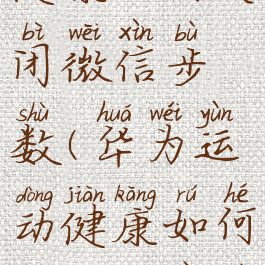 bì wēi xìn bù
闭微信步
shù huá wéi yùn
数(华为运
dòng jiàn kāng rú hé
动健康如何